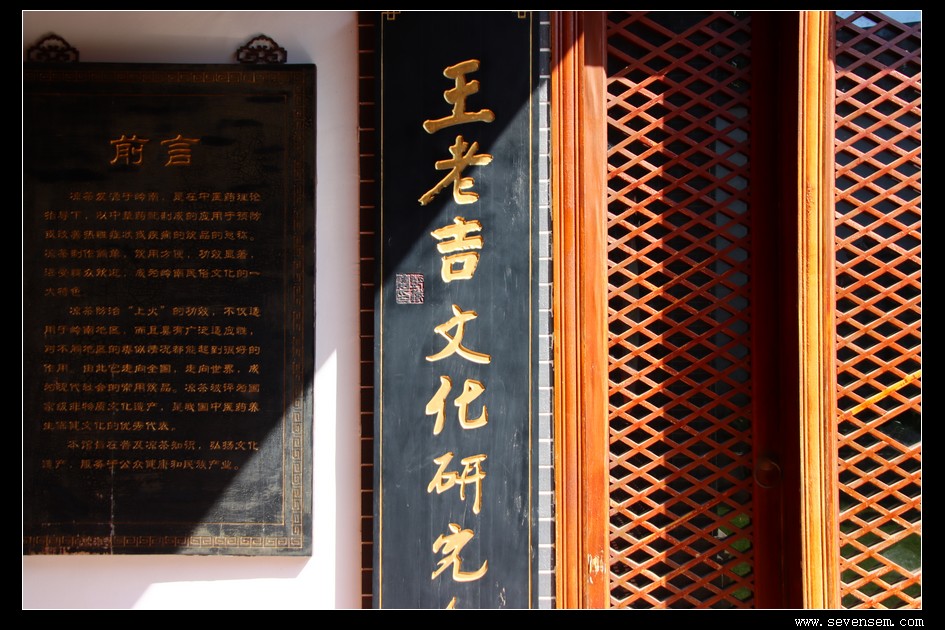 前言
凉茶发源于岭南，是在中医药理论
指导下，以中草药熬制成的应用于预防
凉茶制作简单，饮用方便，功效显著，
深受群众欢迎，成为岭南民俗文化的一
大特色。
凉茶防治“上火”的功效，不仅适
用于岭南地区，而且具有广泛适应性，
对不同地区的类似情况都能起到很好的
作用。由此它走向全国，走向世界，成
为现代社会的常用饮品。凉茶被评为国
家级非物质文化遗产，是我国中医药养
生保健文化的优秀代表。
本馆旨在普及凉茶知识，弘扬文化
遗产，服务于公众健康和民族产业。
王老吉文化研究
www.sevensem.com